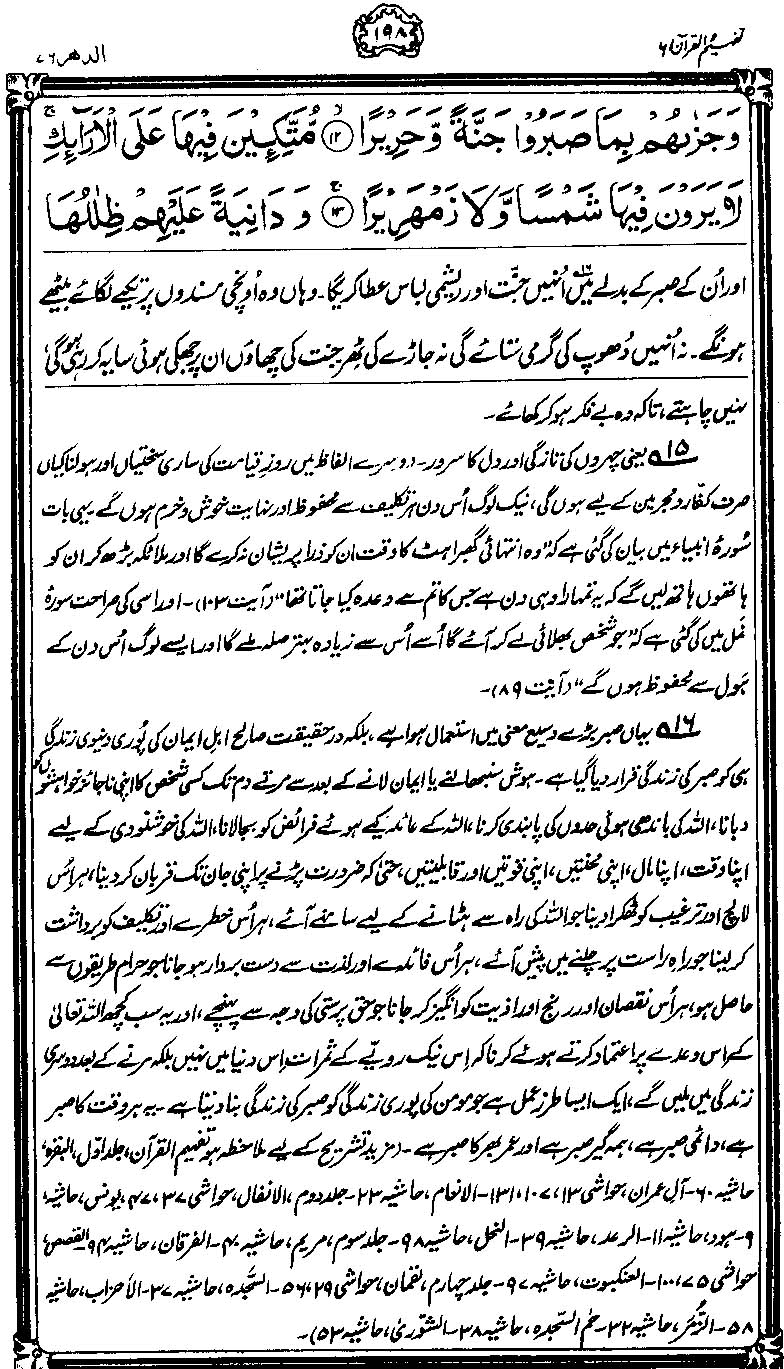 تفہیم القرآن ۶
۱۹۸
الدھر ۷۶
وَجَزٰىهُمْ بِمَا صَبَرُوْا جَنَّةً وَّحَرِيْرًا ۝۱۲ مُّتَّكِـِٕيْنَ فِيْهَا عَلَى الْاَرَآىِٕكِ ۚ
لَا يَرَوْنَ فِيْهَا شَمْسًا وَّلَا زَمْهَرِيْرًا ۝۱۳ وَدَانِيَةً عَلَيْهِمْ ظِلٰلُهَا
اور اُن کے صبر کے بدلے میں۱۶ اُنہیں جنّت اور ریشمی لباس عطا کریگا۔ وہاں وہ اُونچی مسندوں پر تکیے لگائے بیٹھے
ہونگے۔ نہ اُنہیں دُھوپ کی گرمی ستائے گی نہ جاڑے کی ٹِھر۔ جنت کی چھاؤں ان پر جھکی ہوئی سایہ کر رہی ہو گی،
نہیں چاہتے، تاکہ وہ بے فکر ہو کر کھائے۔
۱۵ یعنی چہروں کی تازگی اور دل کا سرور۔ دوسرے الفاظ میں روزِ قیامت کی ساری سختیاں اور ہولناکیاں
صرف کفّار و مجرمین کے لیے ہوں گی، نیک لوگ اُس دن ہر تکلیف سے محفوظ اور نہایت خوش و خرم ہوں گے۔ یہی بات
سُورۂ انبیاء میں بیان کی گئی ہے کہ "وہ انتہائی گھبراہٹ کا وقت ان کو ذرا پریشان نہ کرے گا اور ملائکہ بڑھ کر ان کو
ہاتھوں ہاتھ لیں گے کہ یہ تمہارا وہی دن ہے جس کا تم سے وعدہ کیا جاتا تھا" (آیت ۱۰۳)۔ اور اسی کی صراحت سورۂ
نمل میں کی گئی ہے کہ "جو شخص بھلائی لے کر آئے گا اُسے اُس سے زیادہ بہتر صلہ ملے گا اور ایسے لوگ اُس دن کے
ہَول سے محفوظ ہوں گے" (آیت ۸۹)۔
۱۶ یہاں صبر بڑے وسیع معنی میں استعمال ہوا ہے، بلکہ درحقیقت صالح اہلِ ایمان کی پُوری دنیوی زندگی
ہی کو صبر کی زندگی قرار دیا گیا ہے۔ ہوش سنبھالنے یا ایمان لانے کے بعد سے مرتے دم تک کسی شخص کا اپنی ناجائز خواہشوں کو
دبانا، اللہ کی باندھی ہوئی حدوں کی پابندی کرنا، اللہ کے عائد کیے ہوئے فرائض کو بجا لانا، اللہ کی خوشنودی کے لیے
اپنا وقت، اپنا مال، اپنی محنتیں، اپنی قوتیں اور قابلیتیں، حتٰی کہ ضرورت پڑنے پر اپنی جان تک قربان کر دینا، ہر اُس
لالچ اور ترغیب کو ٹھکرا دینا جو اللہ کی راہ سے ہٹانے کے لیے سامنے آئے، ہر اُس خطرے اور تکلیف کو برداشت
کر لینا جو راہِ راست پر چلنے میں پیش آئے، ہر اُس فائدے اور لذت سے دست بردار ہو جانا جو حرام طریقوں سے
حاصل ہو، ہر اُس نقصان اور رنج اور اذیت کو انگیز کر جانا جو حق پرستی کی وجہ سے پہنچے، اور یہ سب کچھ اللہ تعالیٰ
کے اس وعدے پر اعتماد کرتے ہوئے کرنا کہ اس نیک رویّے کے ثمرات اِس دنیا میں نہیں بلکہ مرنے کے بعد دوسری
زندگی میں ملیں گے، ایک ایسا طرزِ عمل ہے جو مومن کی پوری زندگی کو صبر کی زندگی بنا دیتا ہے۔ یہ ہر وقت کا صبر
ہے، دائمی صبر ہے، ہمہ گیر صبر ہے اور عمر بھر کا صبر ہے۔ (مزید تشریح کے لیے ملاحظہ ہو تفہیم القرآن، جلد اوّل، البقرہ،
حاشیہ ۶۰۔ آلِ عمران، حواشی ۱۳، ۱۰۷، ۱۳۱۔ الانعام، حاشیہ ۲۳۔ جلد دوم، الانفال، حواشی ۳۷، ۴۷، یونس، حاشیہ
۹۔ ہود، حاشیہ ۱۱۔ الرعد، حاشیہ ۳۹۔ النحل، حاشیہ ۹۸۔ جلد سوم، مریم، حاشیہ ۴۰۔ الفرقان، حاشیہ ۹۴۔ القصص،
حواشی ۷۵، ۱۰۰۔ العنکبوت، حاشیہ ۹۷۔ جلد چہارم، لقمان، حواشی ۲۹، ۵۶۔ السّجدہ، حاشیہ ۳۷۔ الاحزاب، حاشیہ
۵۸۔ الزُّمَر، حاشیہ ۳۲۔ حٰم السّجدہ، حاشیہ ۳۸۔ الشّوریٰ، حاشیہ ۵۳)۔